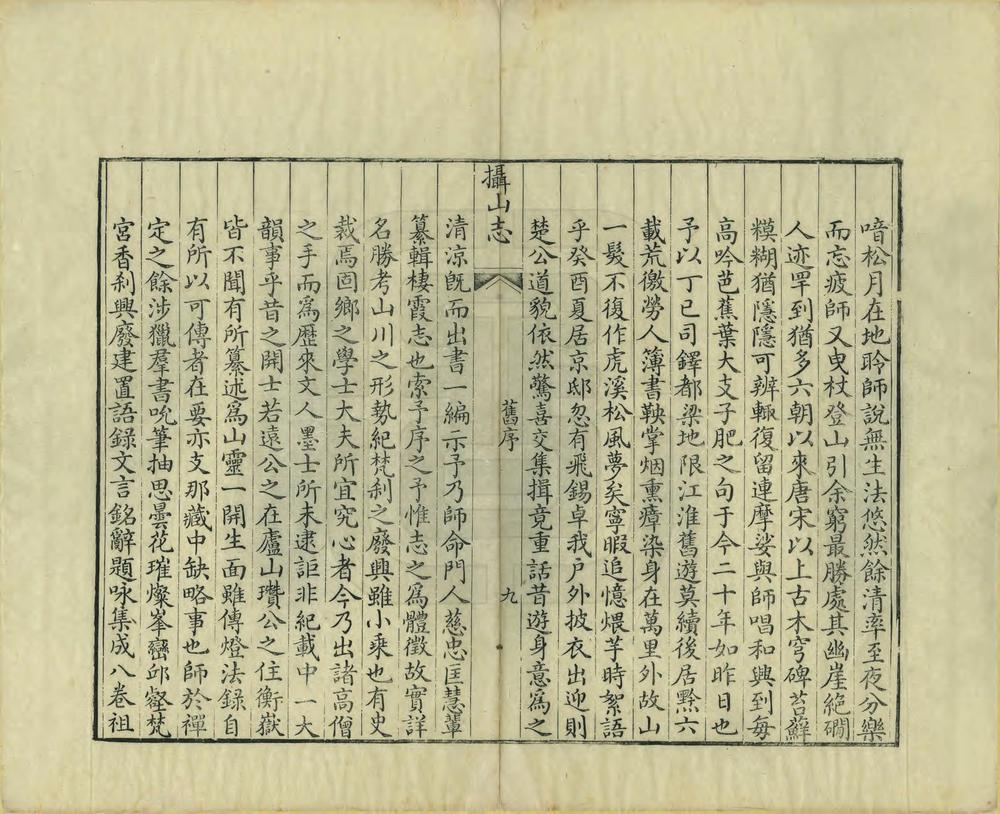 喑松月在地聆師說無生法悠然餘清率至夜分樂
而忘疲師又曳杖登山引余窮最勝處其幽崖絕磵
人迹罕到猶多六朝以來唐宋以上古木穹碑苔蘚
糢糊猶隱隱可辨輙復留連摩娑與師唱和興到每
高吟芭蕉葉大支子肥之句于今二十年如昨日也
予以丁巳司鐸都梁地限江淮舊遊莫續後居黔六
載荒徼勞人簿書鞅掌烟熏瘴染身在萬里外故山
一髮不復作虎溪松風夢矣寧暇追憶煨芋時絮語
乎癸酉夏居京邸忽有飛錫卓我戶外披衣出迎則
楚公道貌依然驚喜交集揖竟重話昔遊身意爲之
攝山志
舊序
九
清涼旣而出書一編示予乃師命門人慈忠匡慧輩
纂輯棲霞志也索予序之予惟志之爲體徵故實詳
名勝考山川之形勢紀梵刹之廢興雖小乘也有史
裁焉固鄉之學士大夫所宜究心者今乃出諸高僧
之手而爲歷來文人墨士所未逮詎非紀載中一大
韻事乎昔之開士若遠公之在廬山瓚公之住衡嶽
皆不聞有所纂述爲山靈一開生面雖傳燈法錄自
有所以可傳者在要亦支那藏中缺略事也師於禪
定之餘涉獵羣書吮筆抽思曇花璀燦峯巒邱壑梵
宮香刹興廢建置語録文言銘辭題咏集成八卷祖